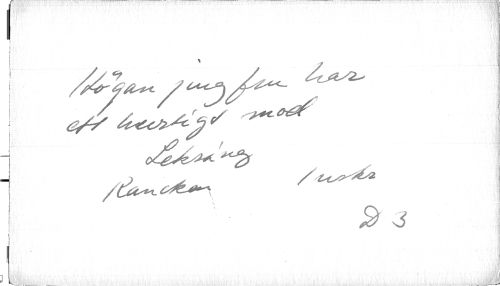 Högan jungfru har
ett hurtigt mod
Leksång
Rancken
D 3